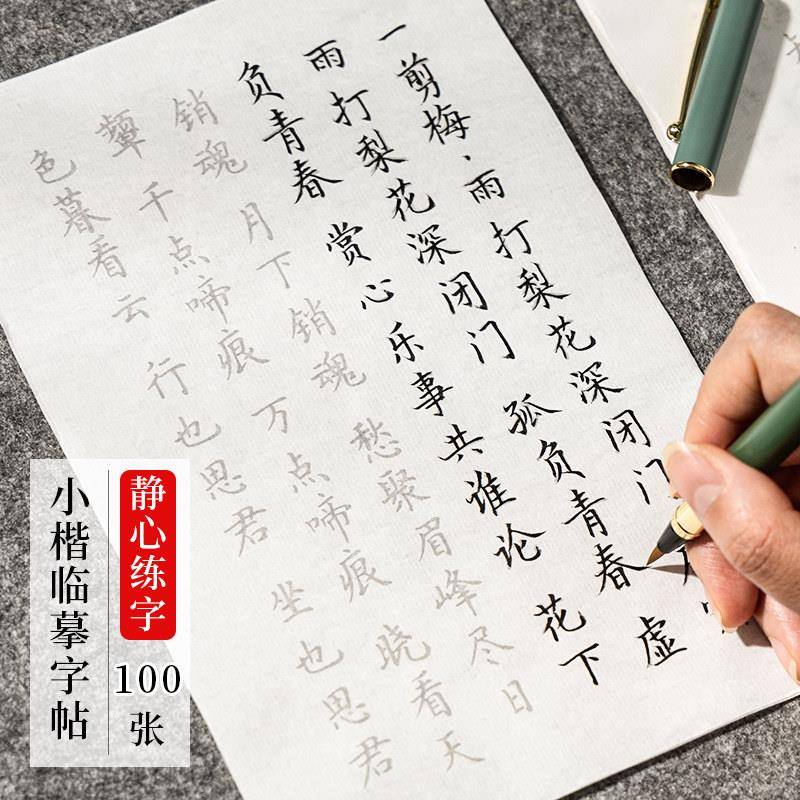 一剪梅·雨打梨花深闭门
雨打梨花深闭门 孤负青春 虚
负青春 赏心乐事共谁论 花下
销魂 月下销魂 愁聚眉峰尽日
颦 千点啼痕 万点啼痕 晓看天
色暮看云 行也思君 坐也思君
静心练字
100
张
小楷临摹字帖